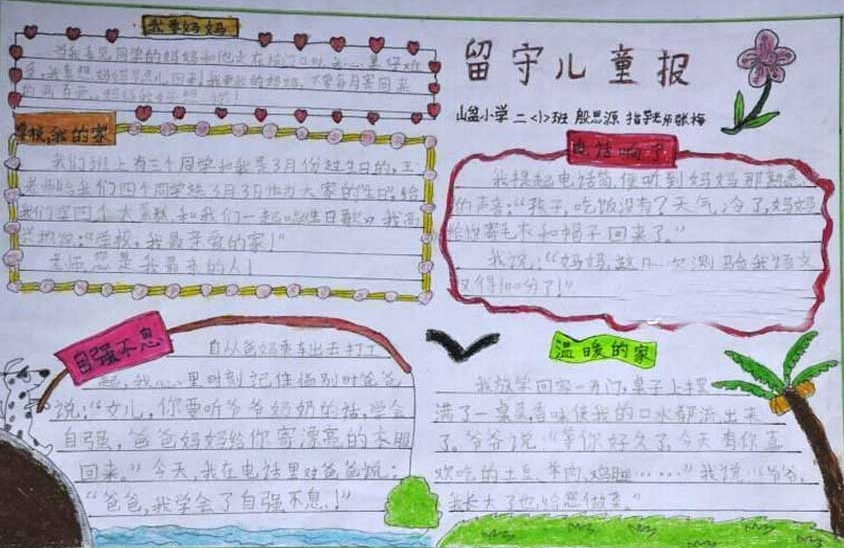 我要妈妈
当我看见同学的妈妈和他走在校门口时,我心里好难
受,我真想妈妈
留守儿童报
山盆小学 二<1>班 殷思源 指导老师张梅
学校,我的家
我们班上有三个同学和我是3月份过生日的,王
老师给我们四个同学把3月3日作为大家的生日,给
我们买四个大蛋糕,和我们一起唱生日歌》我高
兴地说:“学校,我最亲爱的家!”
老师,您是我最亲的人!
电话响了
我提起电话筒,便听到妈妈那熟悉
的声音:“孩子,吃饭没有?天气冷了,妈妈
给你寄毛衣和帽子回来了。”
我说:“妈妈,这几次测验我语文
又得100分了!”
自强不息
自从爸妈乘车出去打工
起,我心里时刻记住临别时爸爸
说:“女儿,你要听爷爷奶奶的话,学会
自强,爸爸妈妈给你寄漂亮的衣服
回来。”今天,我在电话里对爸爸说:
“爸爸,我学会了自强不息!”
温暖的家
我放学回家一开门,桌子上摆
满了一桌菜,香味使我的口水都流出来
了。爷爷说:“等你好久了,今天有你喜
欢吃的土豆、羊肉、鸡腿……”我说:“爷爷,
我长大了也给您做菜。”